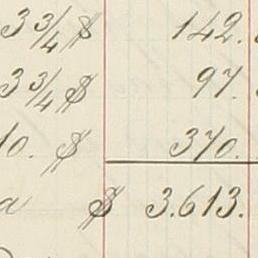 3 3/4 $ 142.
3 3/4 $ 97.
10. $ 370.
a $ 3.613.